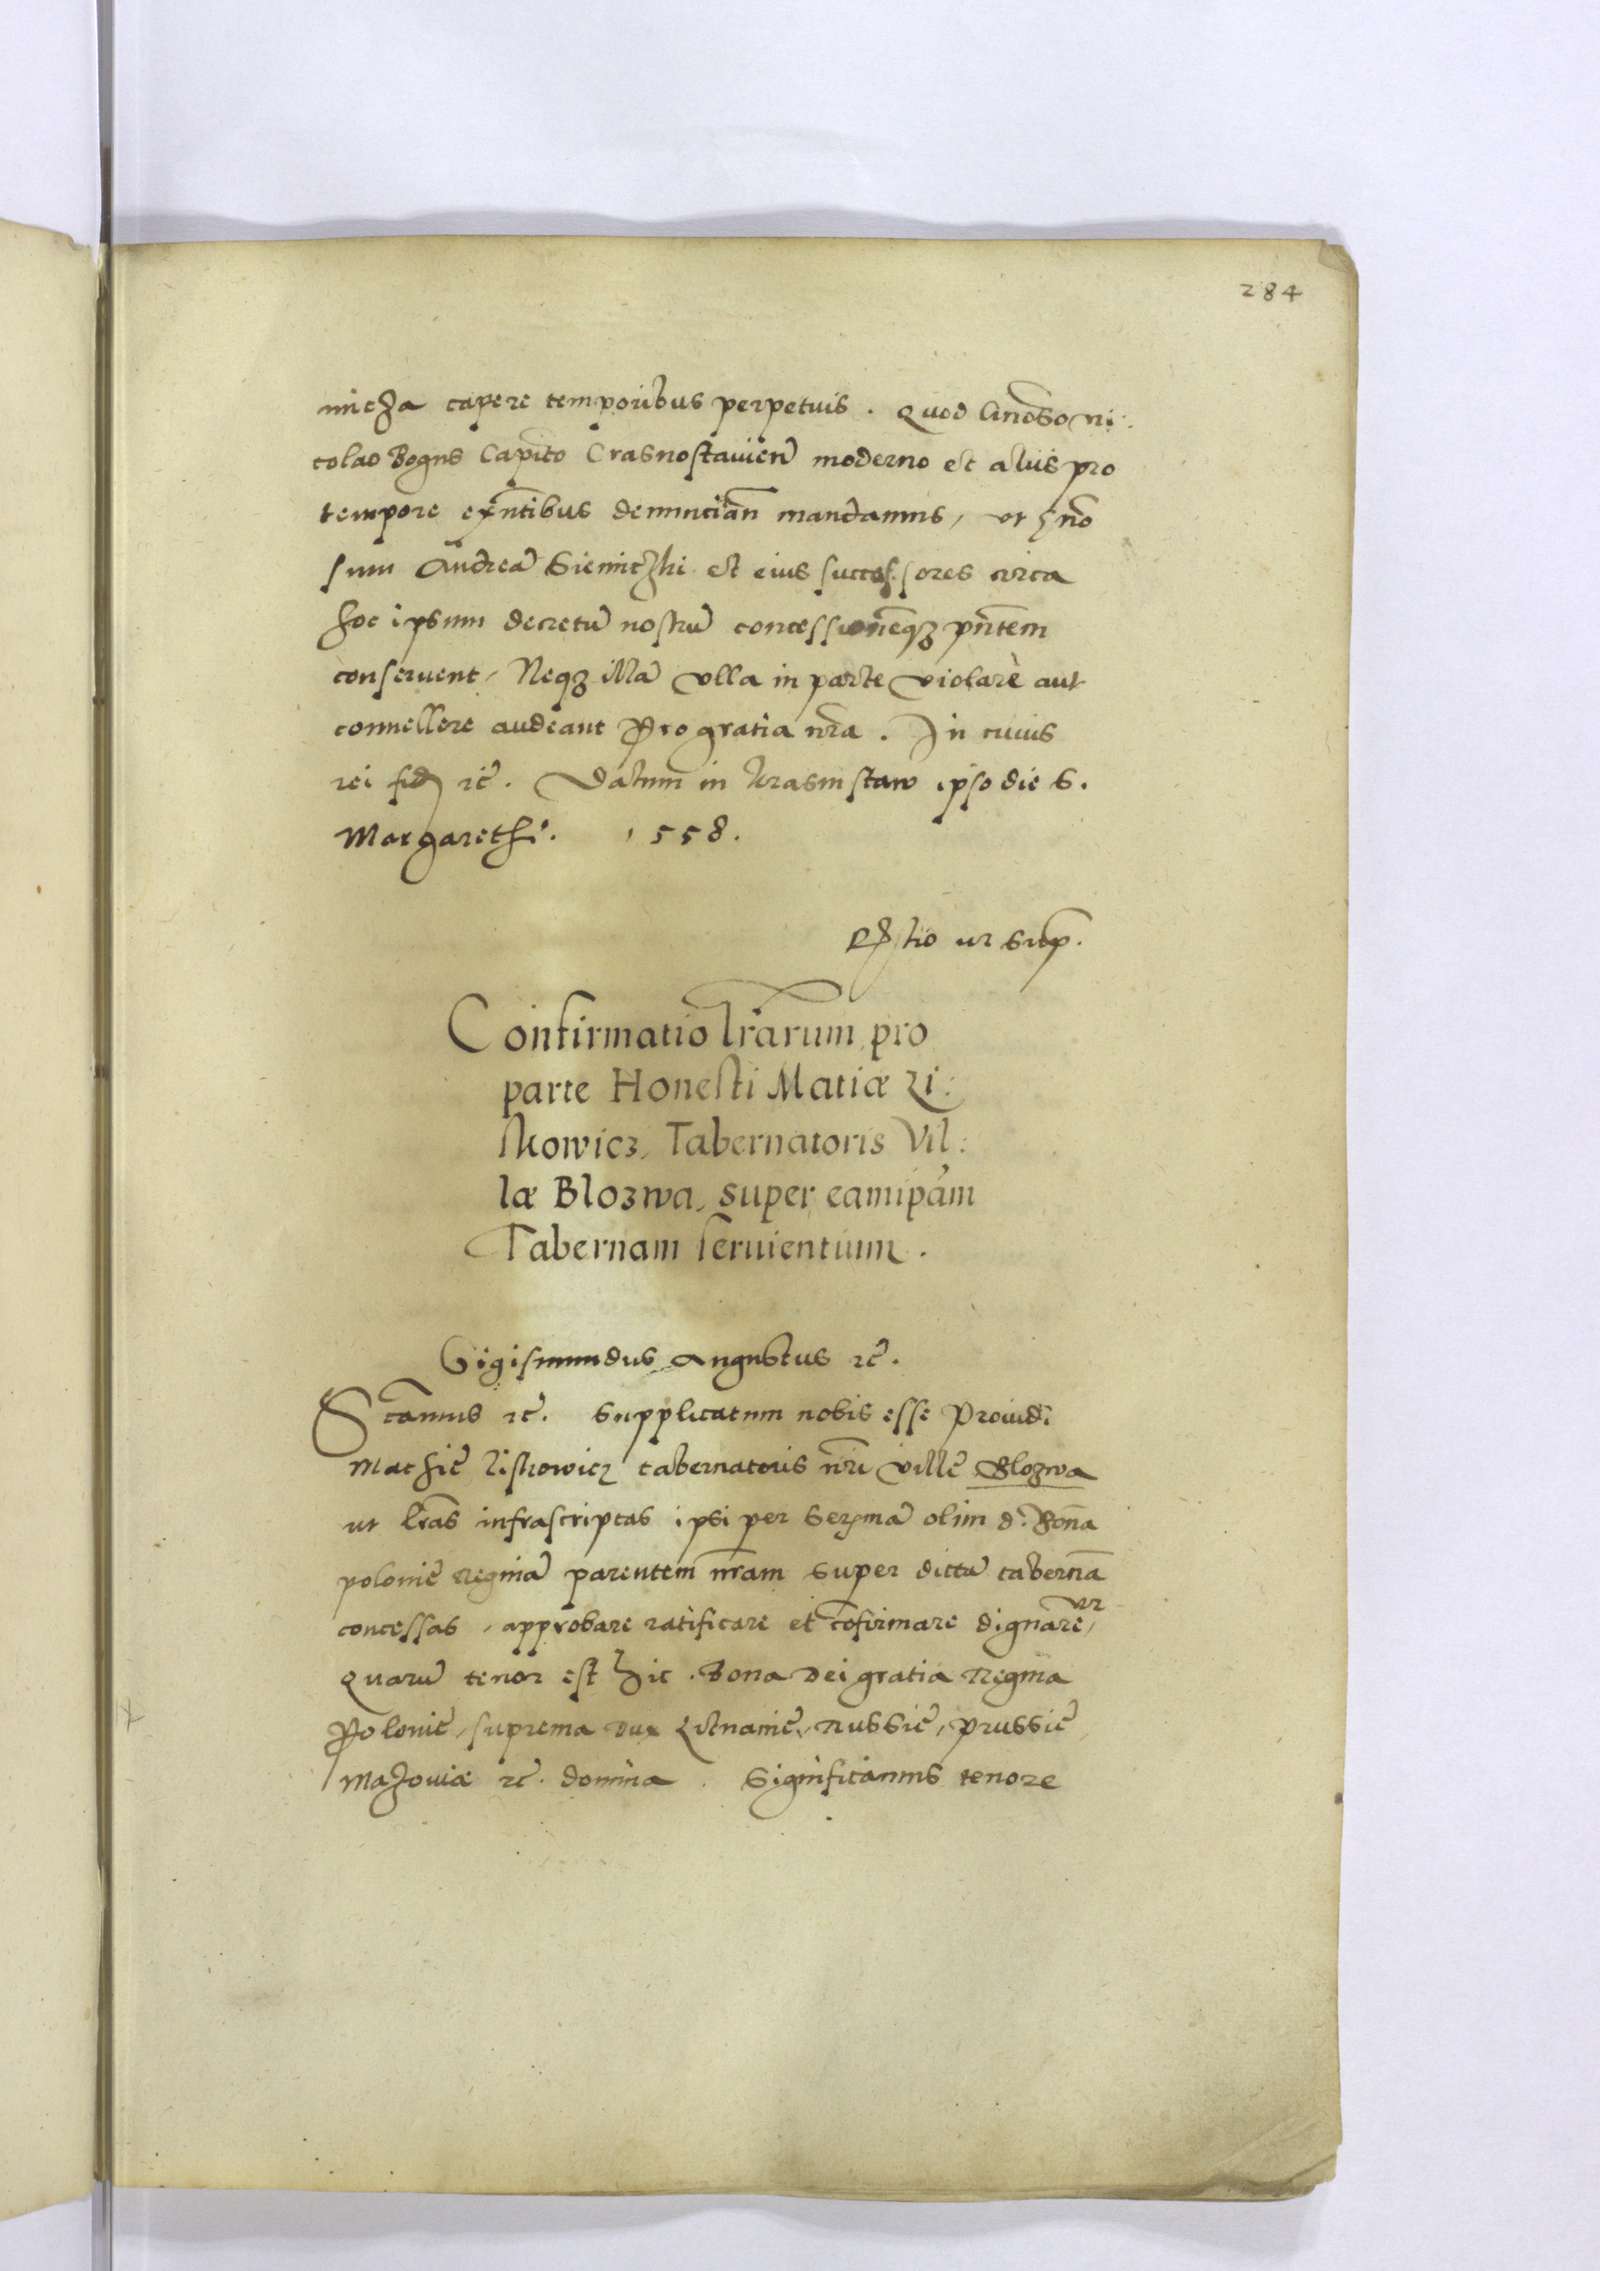 284
micza capere temporibus perpetuis. Quod Gnoso Ni:
colao Bogus Capito Crasnostavien moderno et aliis pro
tempore exñtibus denunciañ mandamus, ut gno
sum Andreã Siemiczki et eius successores circa
hoc ipsum decretũ nostrũ concessionẽqz pñtem
conservent, Neqz illã ulla in parte violare aut
convellere audeant Pro gratia nrã. In cuius
rei fid etc̃. Datum in Krasnistaw ipso die S.
Margarethę. 1558.
Rłtio ut sup.
Confirmatio lrãrum pro
parte Honesti Matiæ Zi:
skowicz, Tabernatoris Vil:
læ Blozwa, super eamipãm
Tabernam servientium.
Sigismundus Augustus etc̃.
Sctamus etc̃. Supplicatum nobis esse Providi
Mathię Ziskowicz tabernatoris nrĩ villę Blozwa
ut lrãs infrascriptas ipsi per Sermã olim d. Bonã
polonię Reginã parentem nrãm super dictã tabernã
concessas, approbare ratificare et cõfirmare dignaremur,
Quarũ tenor est hic. Bona Dei gratia Regina
Polonię, suprema Dux Lituanię, Russię, Prussię
Mazoviæ etc̃. domina. Significamus tenore